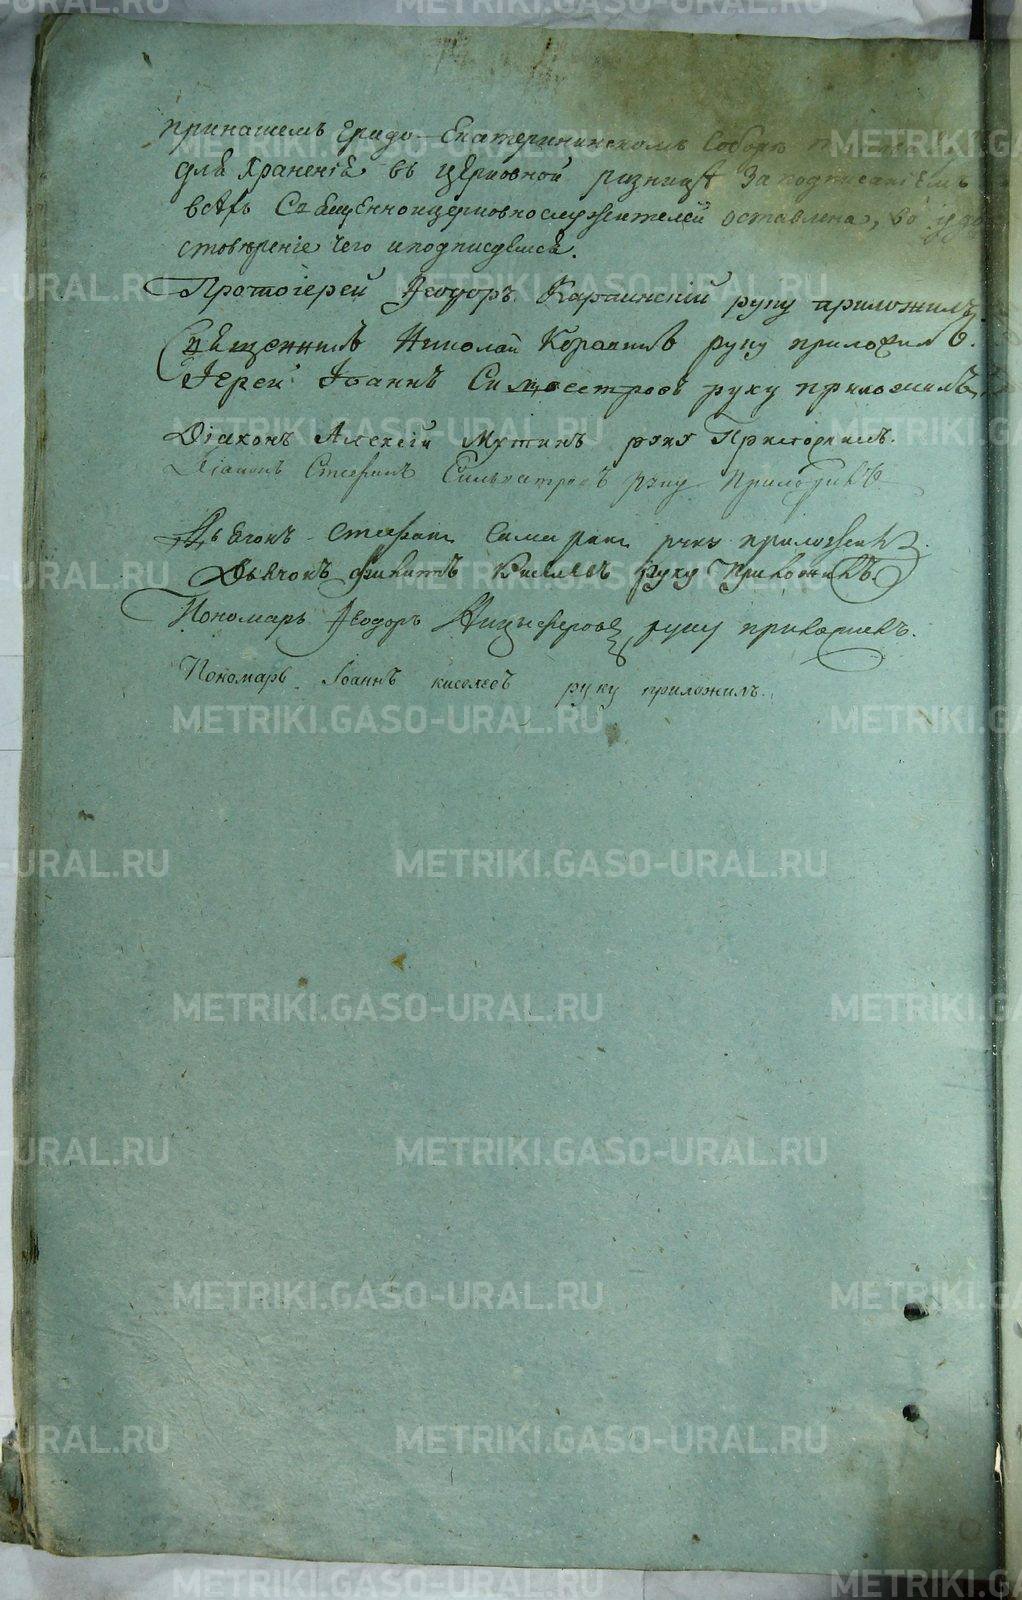 принашемъ Градо-Екатерининскомъ Соборѣ
для храненія въ церковной ризницѣ За подписаніемъ
всѣхъ Священноицерковнослужителей оставлена, во удо
стовѣреніе чего иподписуемся.
Протоіерей Ѳеодоръ Карпинскій руку приложилъ.
Священникъ Николай руку приложилъ.
Іерей Іоаннъ Сильвестровъ руку приложилъ.
Діаконъ Алексій Мутинъ руку Приложилъ.
Діаконъ Стефанъ Сильвестровъ руку Приложилъ
Дьячокъ Стефанъ руку приложилъ
Дьячокъ Киселевъ Руку Приложилъ
Пономарь Ѳеодоръ руку приложилъ.
Пономарь Іоаннъ киселевъ руку приложилъ.
METRIKI.GASO-URAL.RU